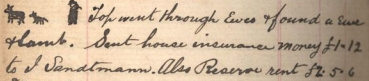 Top went through Ewes & found a Ewe
& Lamb. Sent house insurance money £1-12
to J Sandtmann. Also Reserve rent £2-5-6